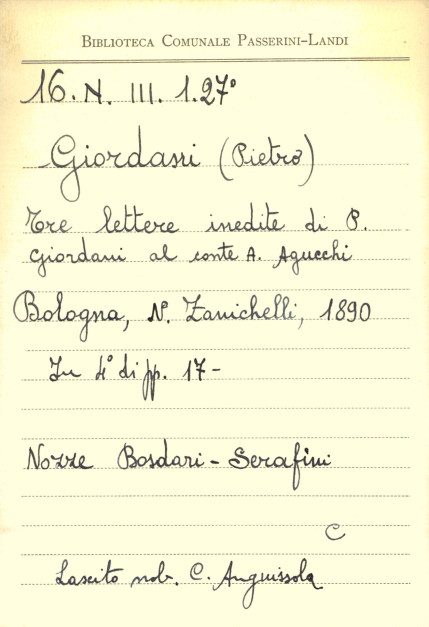 BIBLIOTECA COMUNALE PASSERINI-LANDI
16. N. III. 1. 27°
Giordani (Pietro)
Tre lettere inedite di P.
Giordani al conte A. Agucchi
Bologna, N. Zanichelli, 1890
In 4° di pp. 17-
Nozze Bosdari - Serafini
C
Lascito nob. C. Anguissola